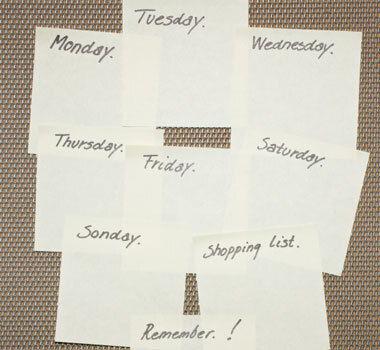 Tuesday.
Monday.
Wednesday.
Thursday.
Friday.
Saturday.
Sonday.
Shopping list.
Remember. !